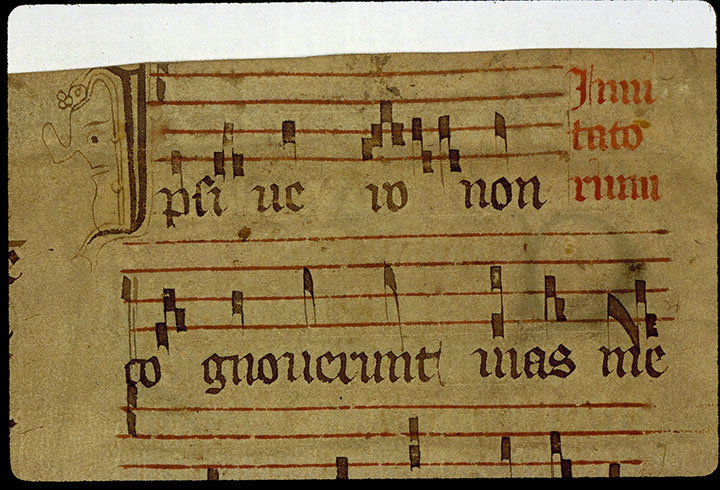 Ipsi ue ro non
Inui
tato
rium
co gnouerunt uias me